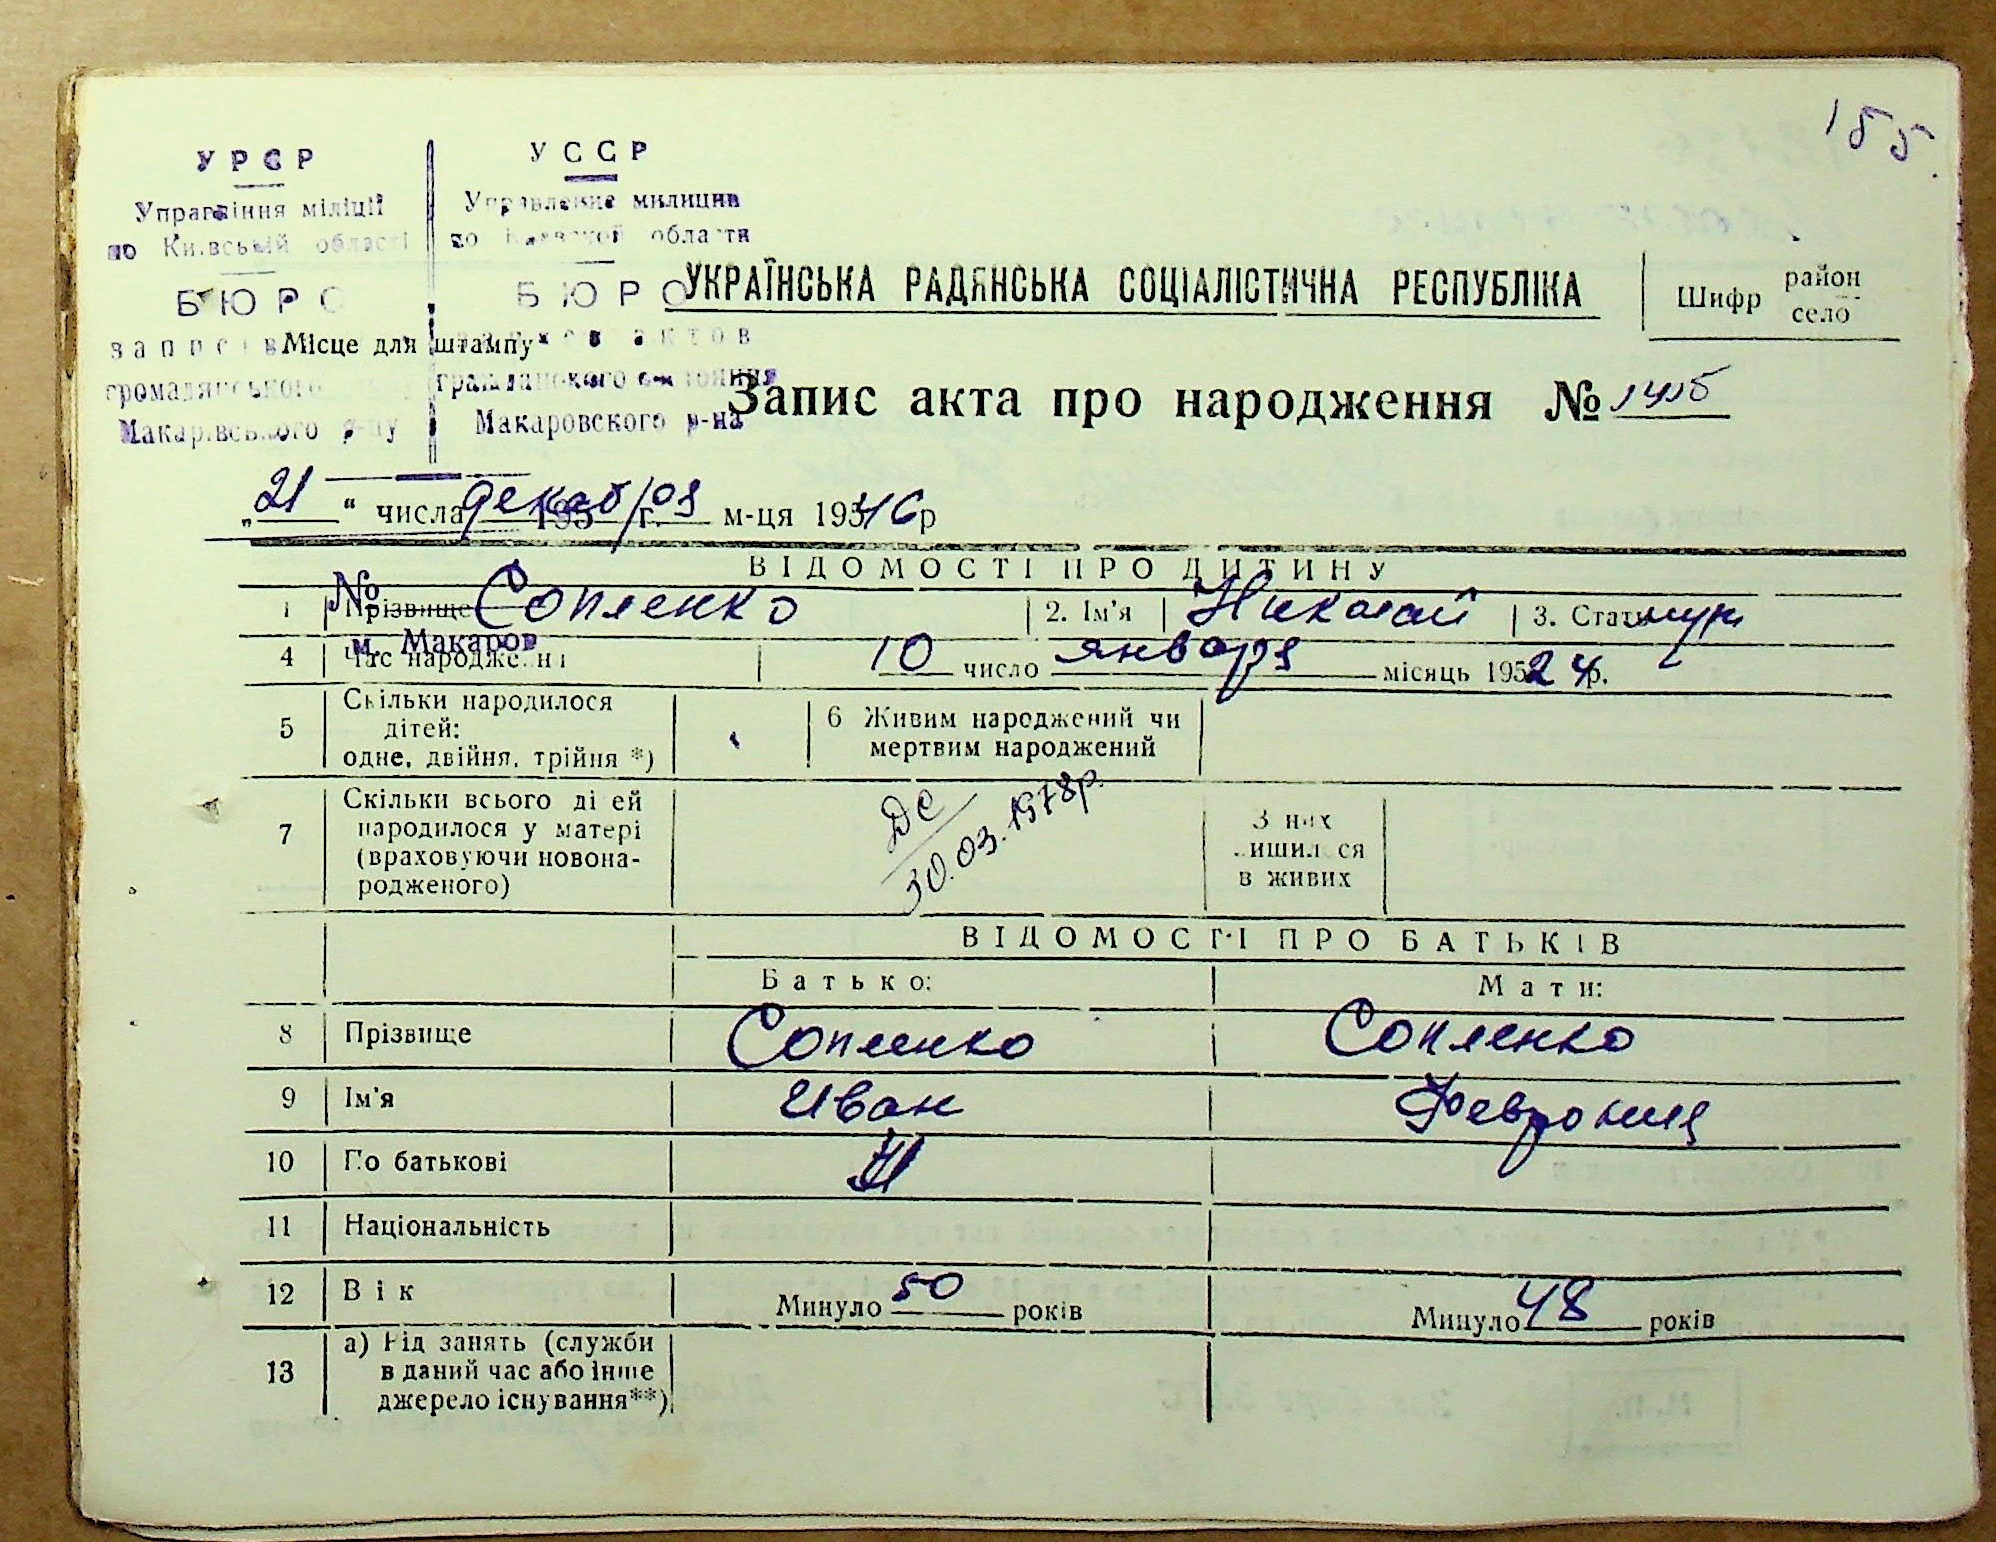 155.
УРСР
Управління міліції
по Київській області
БЮРО
записів
громадянського
Макарівського р-ну
УССР
Управление милиции
по Киевской области
БЮРО
актов
гражданского состояния
Макаровского р-на
Місце для штампу
УКРАЇНСЬКА РАДЯНСЬКА СОЦІАЛІСТИЧНА РЕСПУБЛІКА
Шифр район
село
Запис акта про народження №
„21“ числа декабря м-ця 1946р
195 г.
ВІДОМОСТІ ПРО ДИТИНУ
№
1 Прізвище Сопленко 2. Ім'я Николай 3. Стать муж
м. Макаров
4 Час народження 10 число января місяць 1924р.
5 Скільки народилося
дітей:
одне, двійня, трійня *)
6 Живим народжений чи
мертвим народжений
7 Скільки всього дітей
народилося у матері
(враховуючи новона-
родженого)
ДС
30.03.1978р.
З них
лишилося
в живих
ВІДОМОСТІ ПРО БАТЬКІВ
Батько: Мати:
8 Прізвище Сопленко Сопленко
9 Ім'я Иван Феврония
10 По батькові
11 Національність
12 Вік Минуло 50 років Минуло 48 років
13 а) Рід занять (служби
в даний час або інше
джерело існування**)